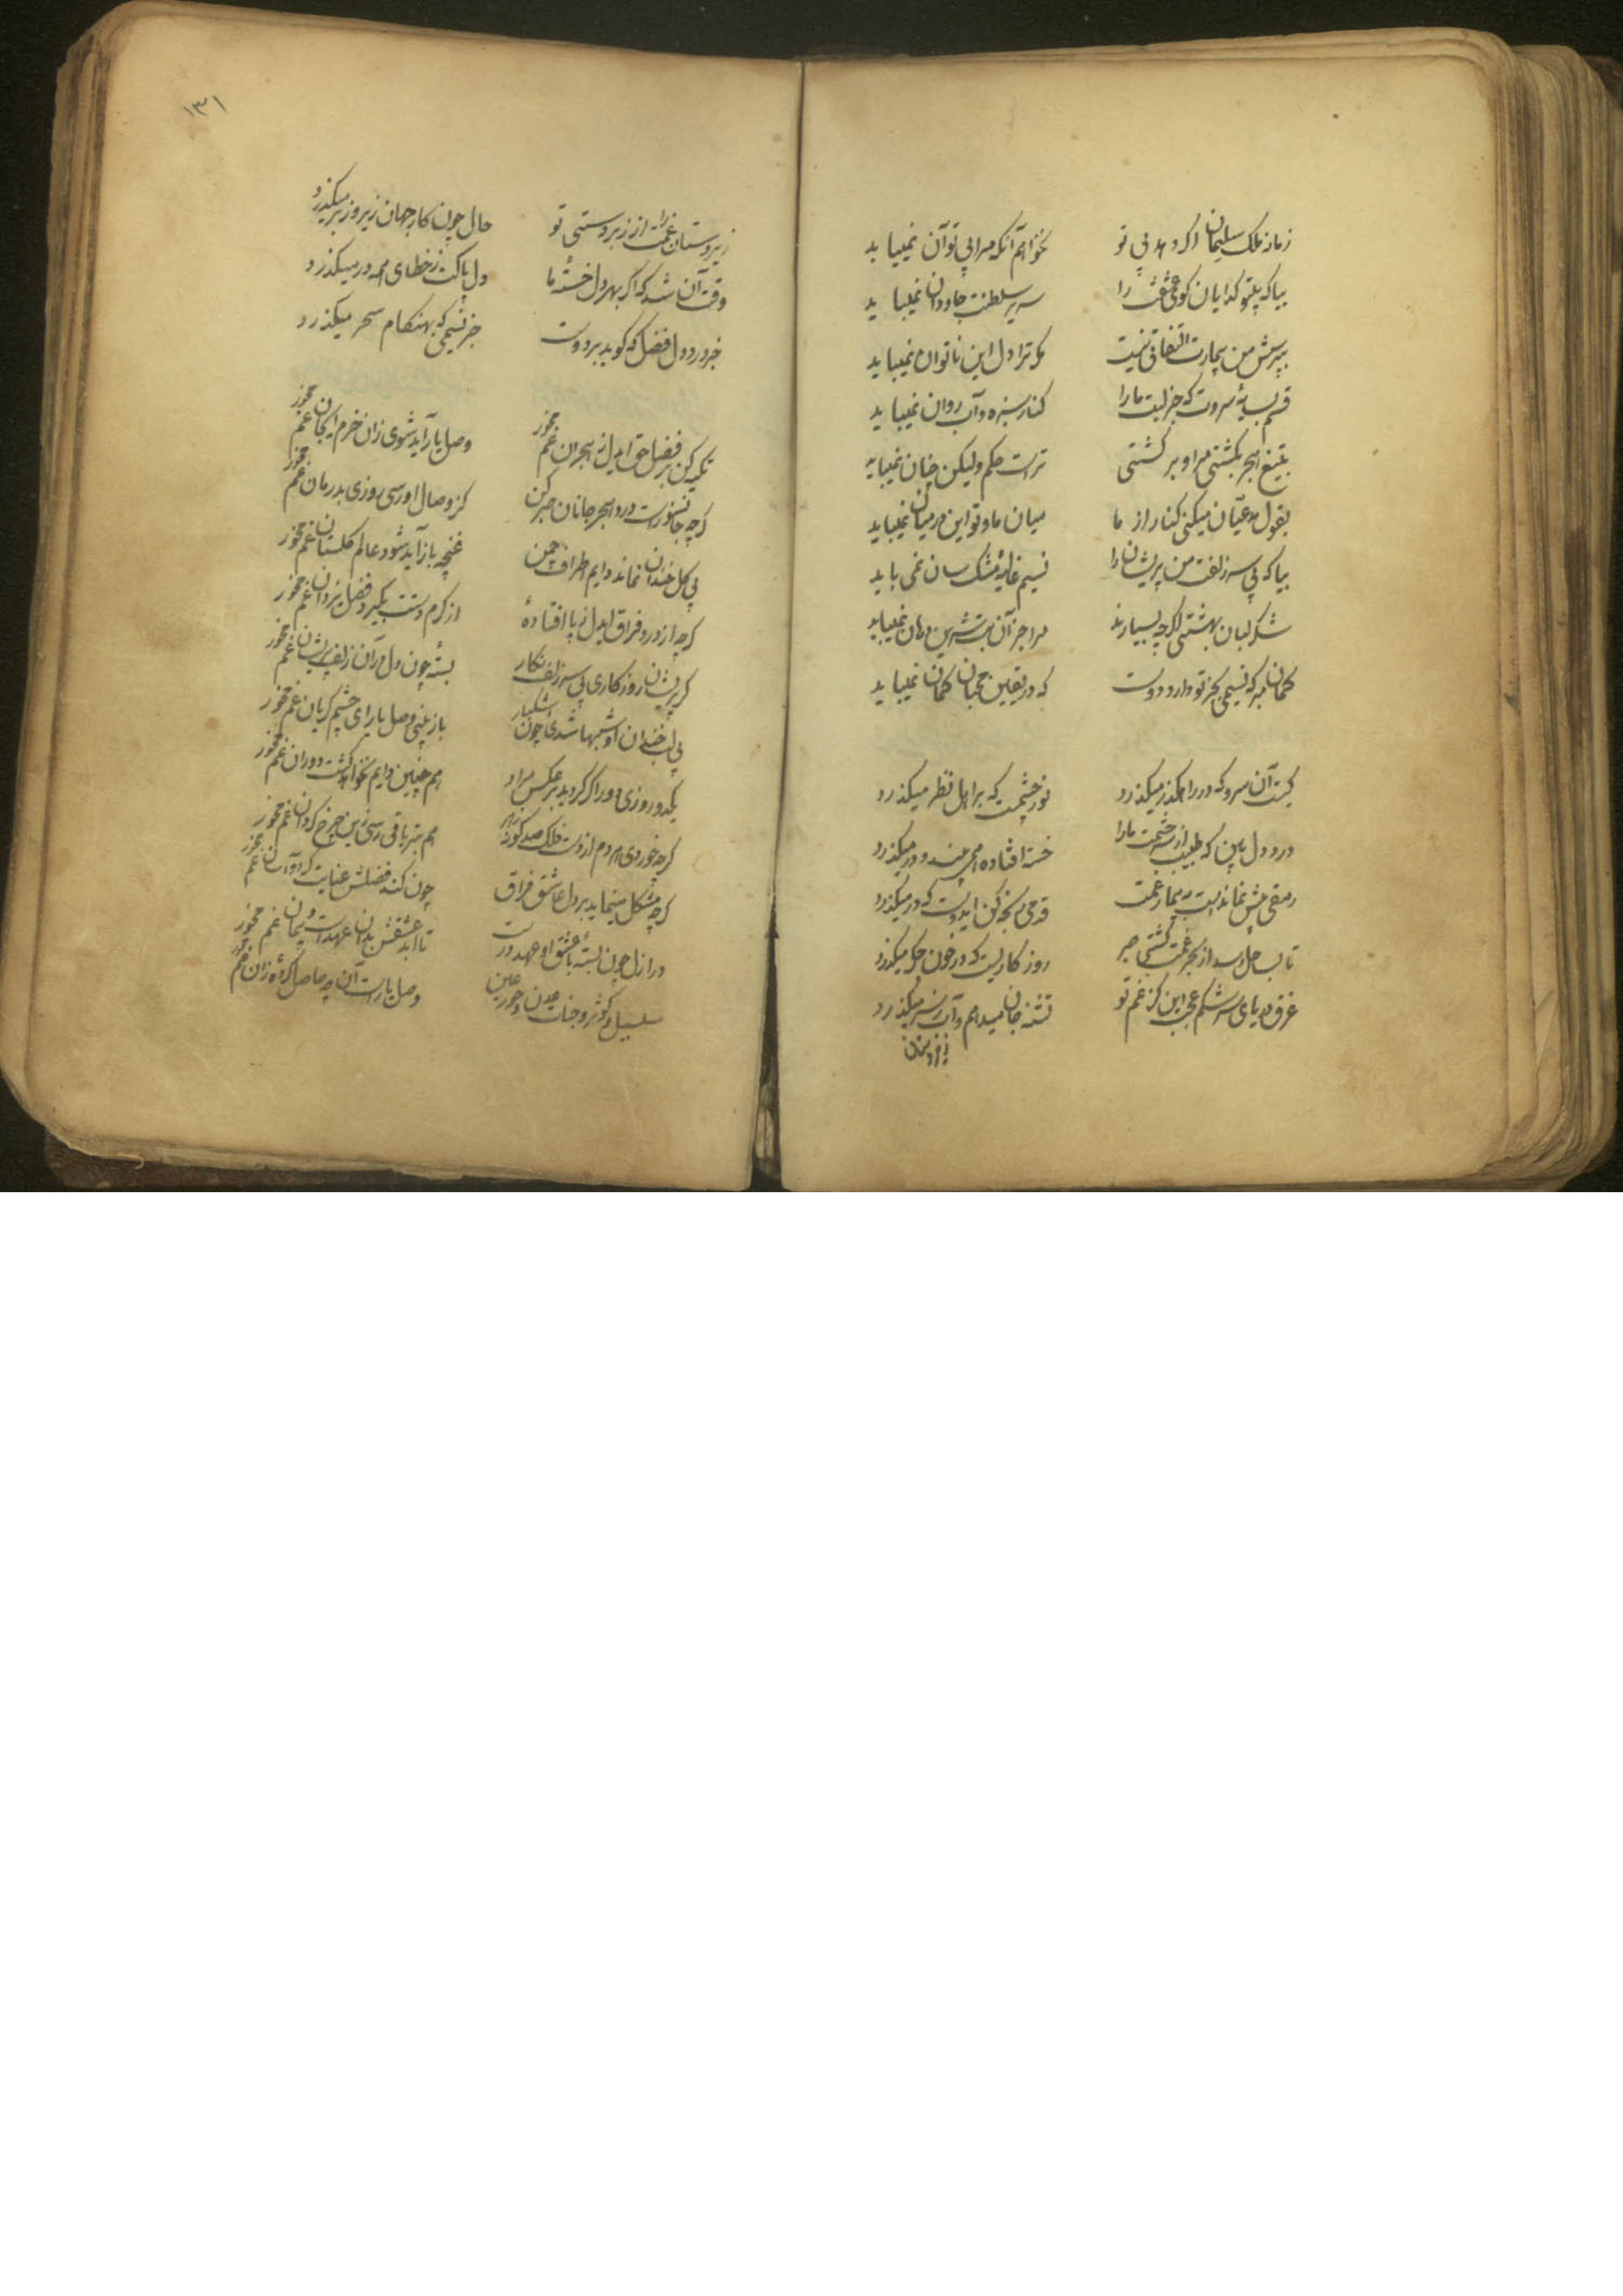 زمانه ملک سلیمان اگر دهد بی تو
نخواهم آنکه مرا بی تو آن نمیباید
بیا که بیتو گدایان کوی عشقت را
سریر سلطنت جاودان نمیباید
بپرسش من بیمارت التفاتی نیست
مگر ترا دل این ناتوان نمیباید
قسم بسایهٔ سروت که جز لبت ما را
کنار سبزه و آب روان نمیباید
بتیغ هجر بکشتی مرا و برگشتی
تراست حکم ولیکن چنان نمیباید
بقول مدعیان میکنی کنار از ما
میان ما و تو این در میان نمیباید
بیا که بی سر زلفت من پریشان را
نسیم غالیهٔ مشک سان نمی باید
شکرلبان بهشتی اگرچه بسیارند
مرا جز آن بت شیرین دهان نمیباید
گمان مبر که نسیمی بجز تو دارد دوست
که در یقین محبان گمان نمیباید
کیست آن سرو که در راهگذر میگذرد
نور چشمست که بر اهل نظر میگذرد
درد دل بین که طبیب از سر خشمت ما را
خسته افتاده همی بیند و در میگذرد
رمقی بیش نماندست ز بیمار غمت
قدمی رنجه کن ایدوست که در میگذرد
تا بساحل رسد از بحر غمت کشتی صبر
روزگاریست که در خون جگر میگذرد
غرق دریای سرشکم عجب این کز غم تو
تشنه جان میدهم و آب ز سر میگذرد
زیردستان
۱۳۱
زیردستان غمت را ز زبردستی تو
حال چون کار جهان زیر و زبر میگذرد
وقت آن شد که اگر بهر دل خستهٔ ما
دل پاکت ز خطای همه در میگذرد
خبر درد دل فضل که گوید بر دوست
جز نسیمی که بهنگام سحر میگذرد
تکیه کن بر فضل حق ایدل ز هجران غم مخور
وصل یار آید شوی زان خرم ایجان غم مخور
گرچه جانسوزست درد هجر جانان صبر کن
کز وصال او رسی روزی بدرمان غم مخور
بی گل خندان نماند دایم اطراف چمن
غنچه باز آید شود عالم گلستان غم مخور
گرچه از درد فراق ایدل ز پا افتادهٔ
از کرم دستت بگیرد فضل یزدان غم مخور
گر پریشان روزگاری بی سر زلف نگار
بستهٔ چون دل در آن زلف پریشان غم مخور
بی لب خندان او شبها شدی چون اشکبار
باز بینی وصل یار ای چشم گریان غم مخور
یکدو روزی دور اگر گردید بر عکس مراد
هم چنین دایم نخواهد گشت دوران غم مخور
گرچه خوردی هر دم از دست فلک صد گونه زهر
هم بتریاقی رسی زین چرخ گردان غم مخور
گرچه مشکل مینماید بر دل عاشق فراق
چون کند فضلش عنایت گردد آسان غم مخور
در ازل چون بستهٔ با عشق او عهد درست
تا ابد عشقش بدان عهدست و پیمان غم مخور
سلسبیل و کوثر و جنات عدن و حور عین
وصل یارست آن چه حاصل کردهٔ زان غم مخور